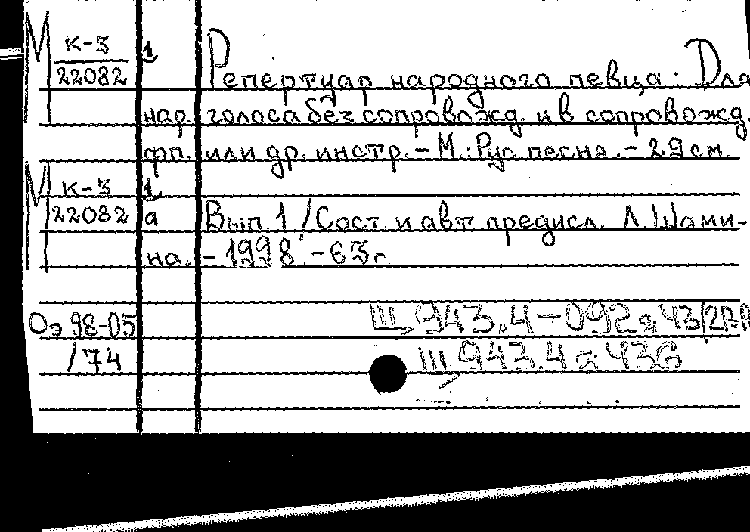 М К-3 1 Репертуар народного певца: Для
22082
нар. голоса без сопровожд. и в сопровожд.
фп. или др. инстр. – М.: Рус. песня. – 29 см.
М К-3 1
22082 а Вып 1 / Сост. и авт. предисл. Л. Шами-
на. – 1998. – 63 с
Оэ 98-05
/74
Щ 943.4-092я43
Щ 943.4я436